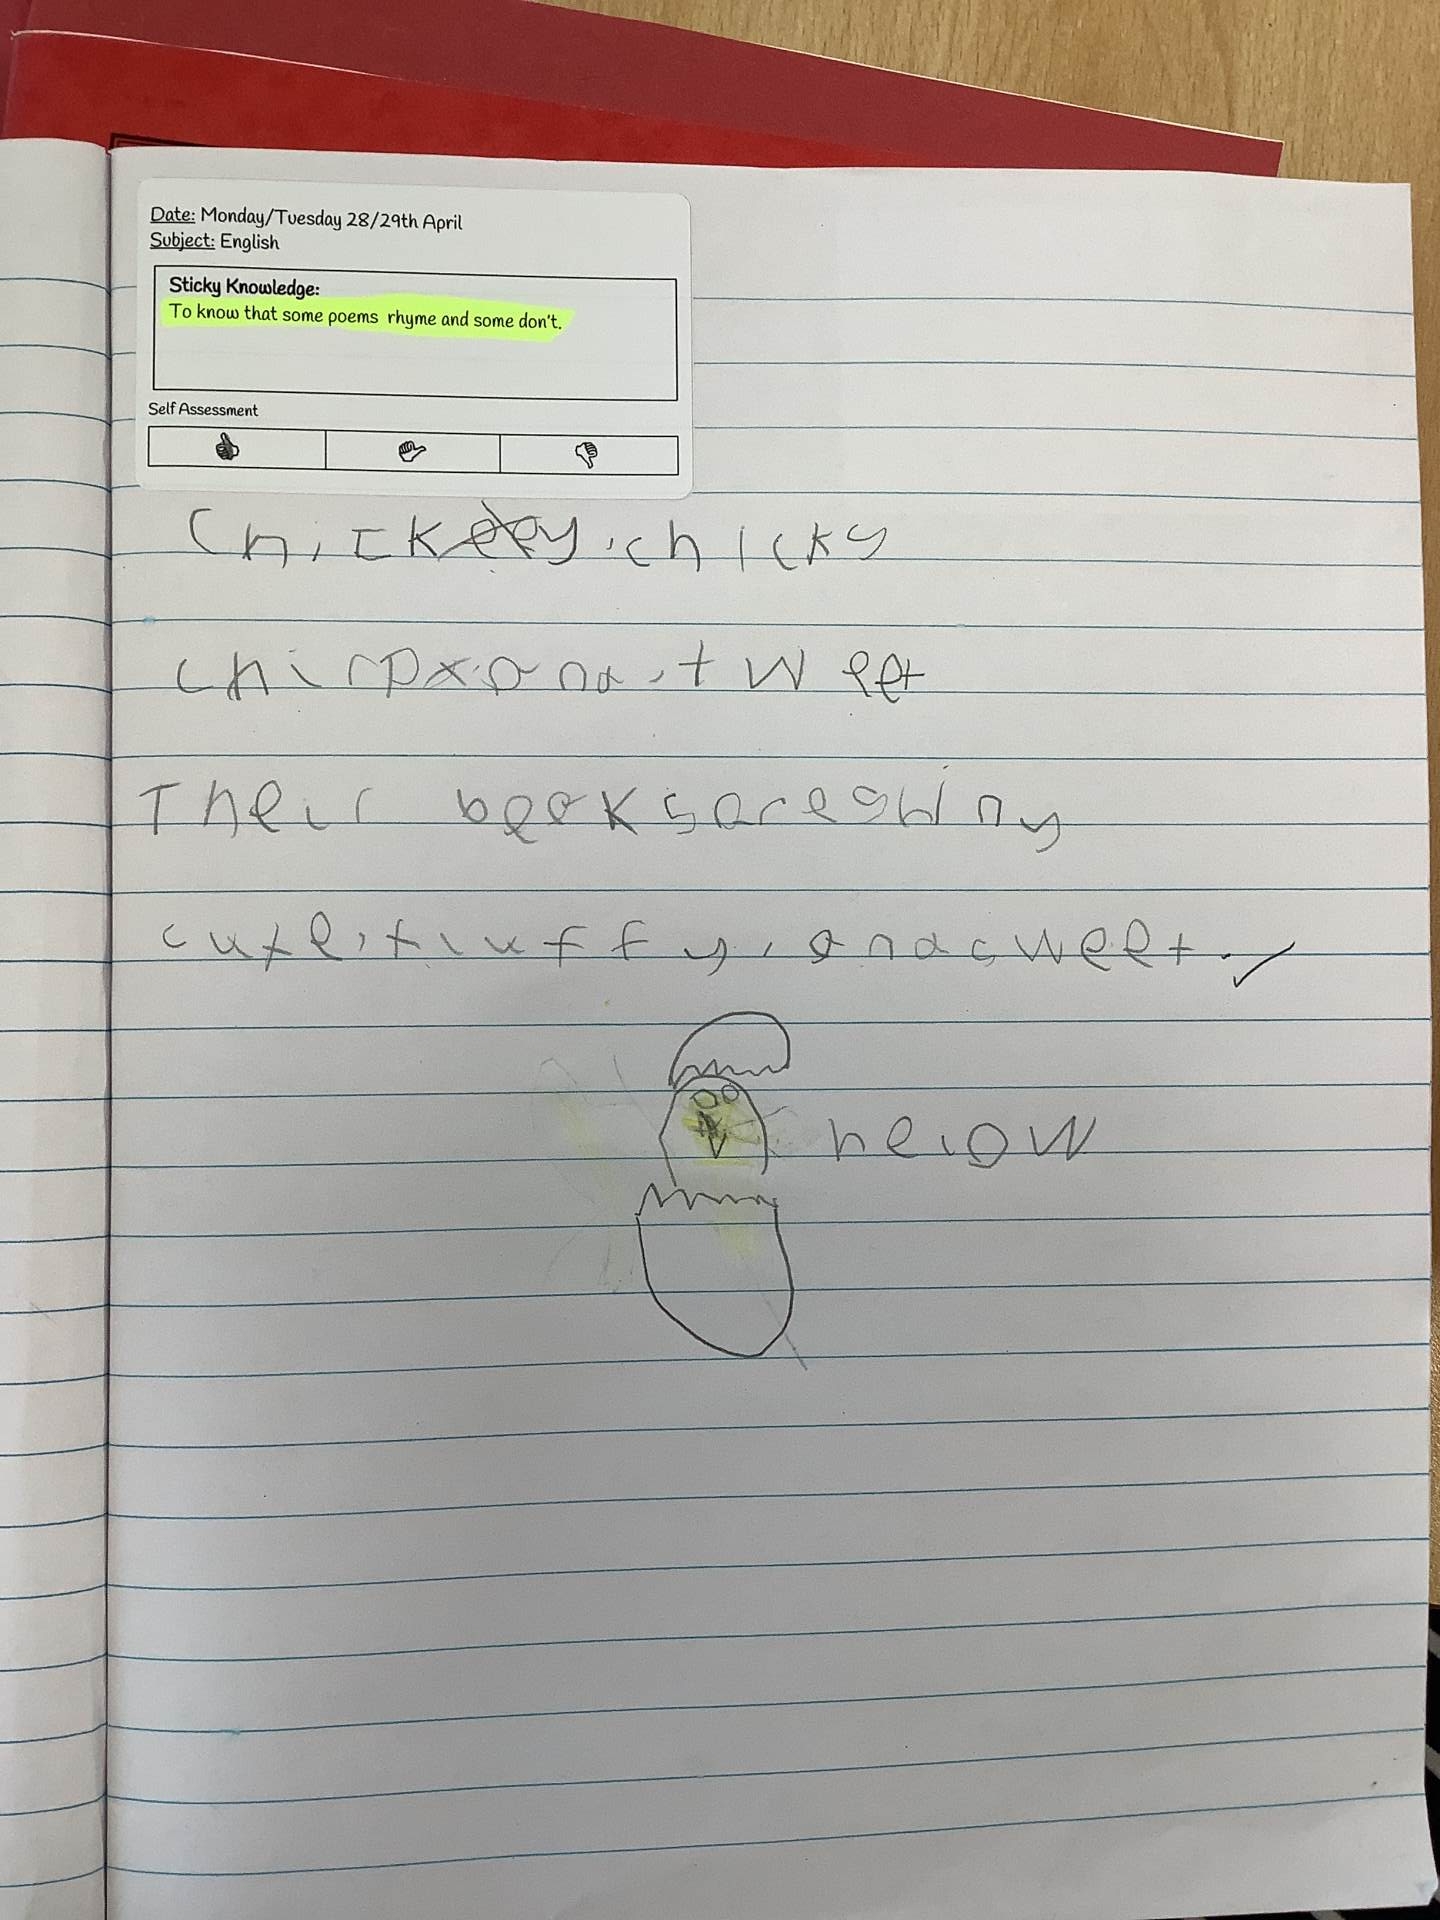 Date: Monday/Tuesday 28/29th April
Subject: English
Sticky Knowledge:
To know that some poems rhyme and some don't.
Self Assessment
Chicky, chicky
chirp and tweet
Their beeks are shiny
cute, fluffy, and sweet.
helow